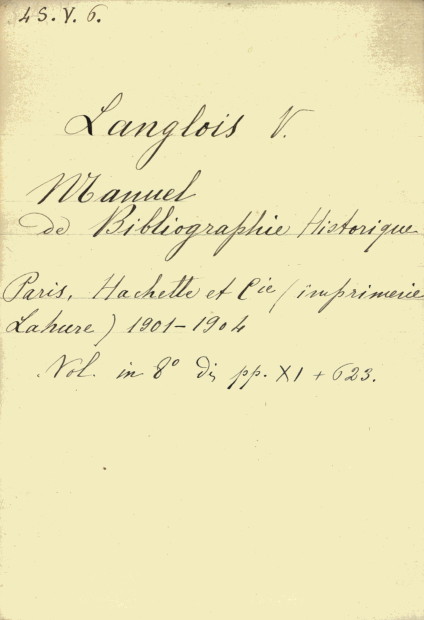 45.V.6.
Langlois V.
Manuel
de Bibliographie Historique
Paris, Hachette et Cie (imprimerie
Lahure) 1901-1904
Vol. in 8° di pp. XI + 623.